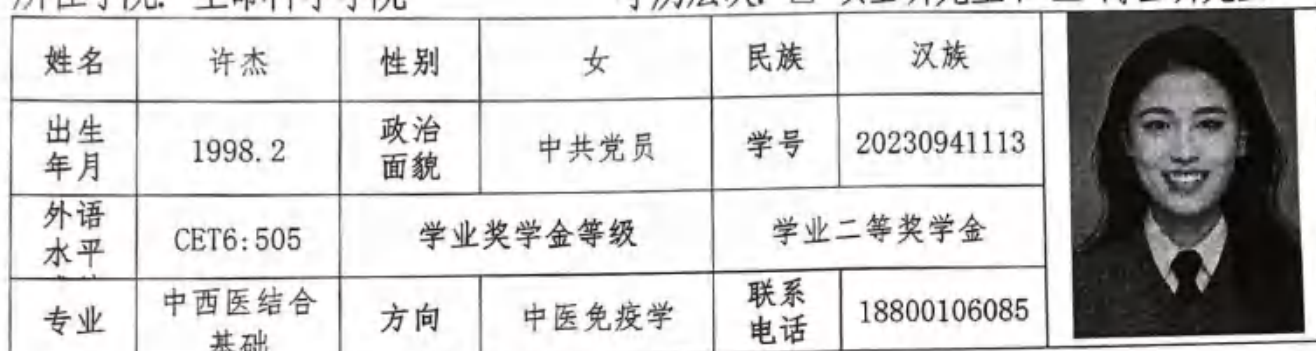 所在学院：生命科学学院 学历层次：
姓名 许杰 性别 女 民族 汉族
出生年月 1998.2 政治面貌 中共党员 学号 20230941113
外语水平 CET6:505 学业奖学金等级 学业二等奖学金
专业 中西医结合基础 方向 中医免疫学 联系电话 18800106085